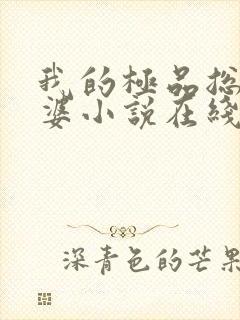 我的極品総
婆小説在綫
深青色的芒果